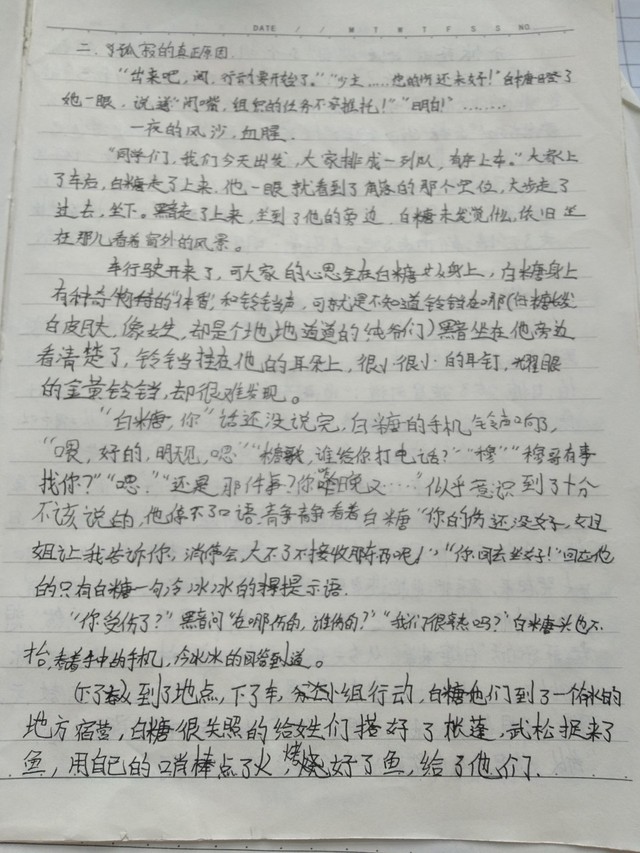 DATE / / M T W T F S S NO.
二、孤寂的真正原因.
"出来吧,闻,行动要开始了。""少主……您的伤还未好!"白糖瞪了
她一眼.说道"闭嘴,组织的任务不容推托!""明白!"……..
一夜的风沙,血腥.
"同学们,我们今天出发,大家排成一列队,有序上车。"大家上
了车后,白糖走了上来,他一眼就看到了角落的那个空位,大步走了
过去,坐下。黯走了上来,坐到了他的旁边.白糖未发觉他,依旧坐
在那儿看着窗外的风景。
车行驶开来了,可大家的心思全在白糖身上,白糖身上
有种奇特的"体香",和铃铛声,可就是不知道铃铛在哪(白糖
白皮肤,像女生,却是个地地道道的纯爷们)黯坐在他旁边
看清楚了,铃铛挂在他的耳朵上,很小很小的耳钉,耀眼
的金黄铃铛,却很难发现。
"白糖,你"话还没说完,白糖的手机铃声响了,
"喂,好的,明天见,嗯""糖歌,谁给你打电话?""穆""穆哥有事
找你?""嗯.""还是那件事?你昨晚又……"似乎意识到了十分
不该说的,他停不了口语,静静看着白糖"你的伤还没好,姐
姐让我告诉你,消停会,大不了不接收那东西呢!","你回去坐好!"回应他
的只有白糖一句冷冰冰的提示语.
"你受伤了?"黯问"在哪伤的,谁伤的?""我们很熟吗?"白糖头也不
抬,看着手中的手机,冷冰冰的回答到道。
到了地点,下了车,分小组行动,白糖他们到了一个有水的
地方宿营,白糖很失照的给女生们搭好了帐蓬,武松捉来了
鱼,用自己的哨棒点了火,烤好了鱼,给了他们.